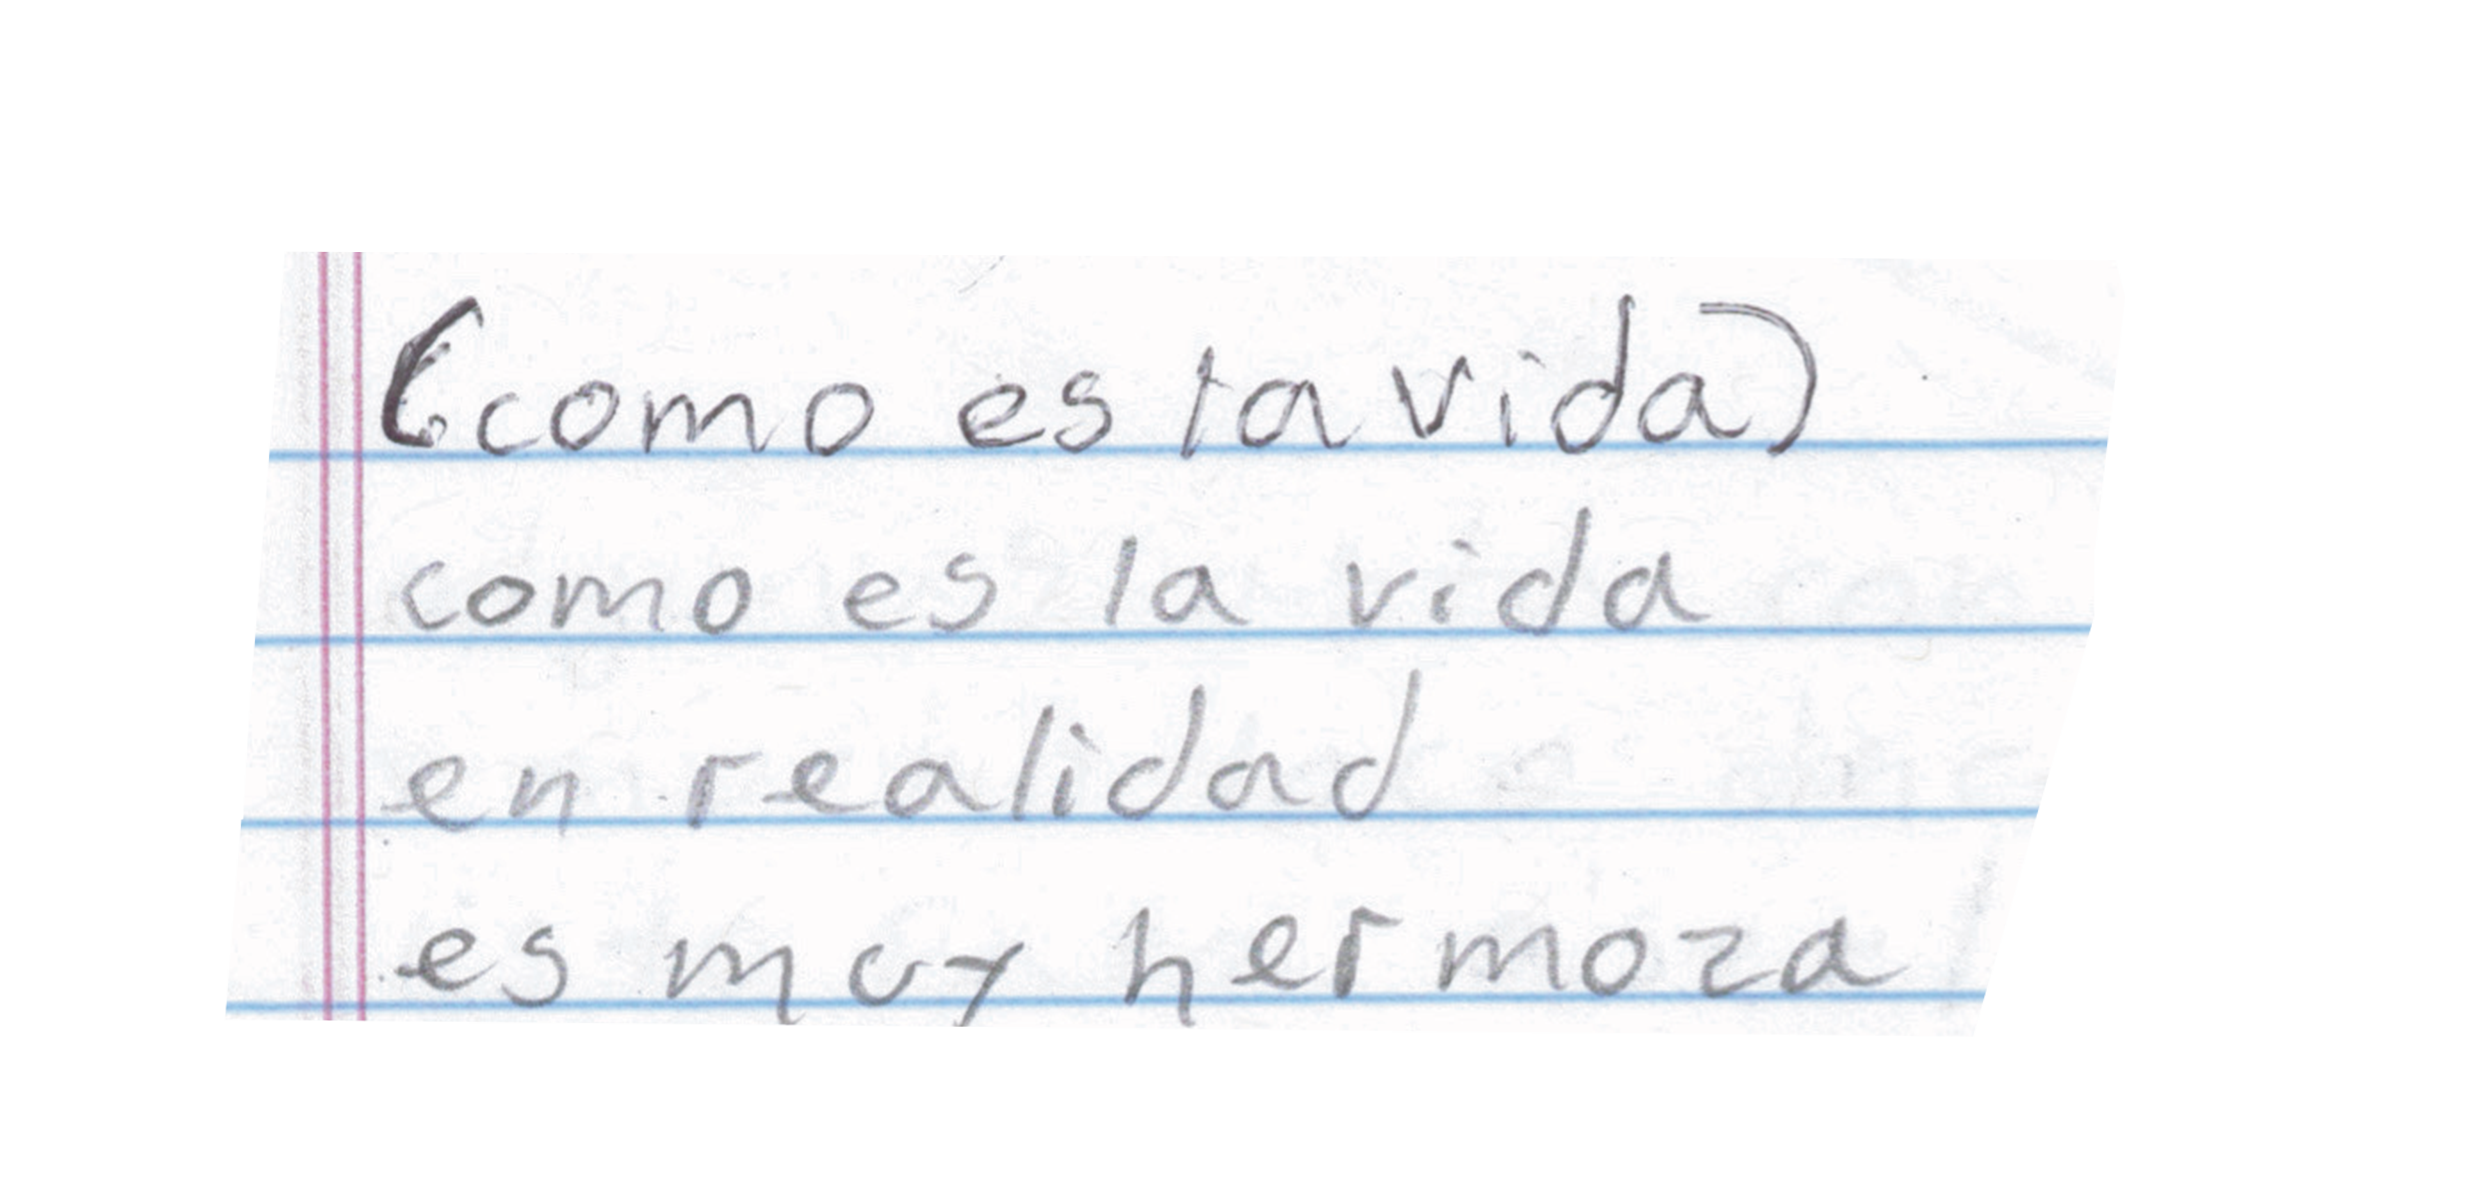 (como es la vida)
como es la vida
en realidad
es muy hermoza